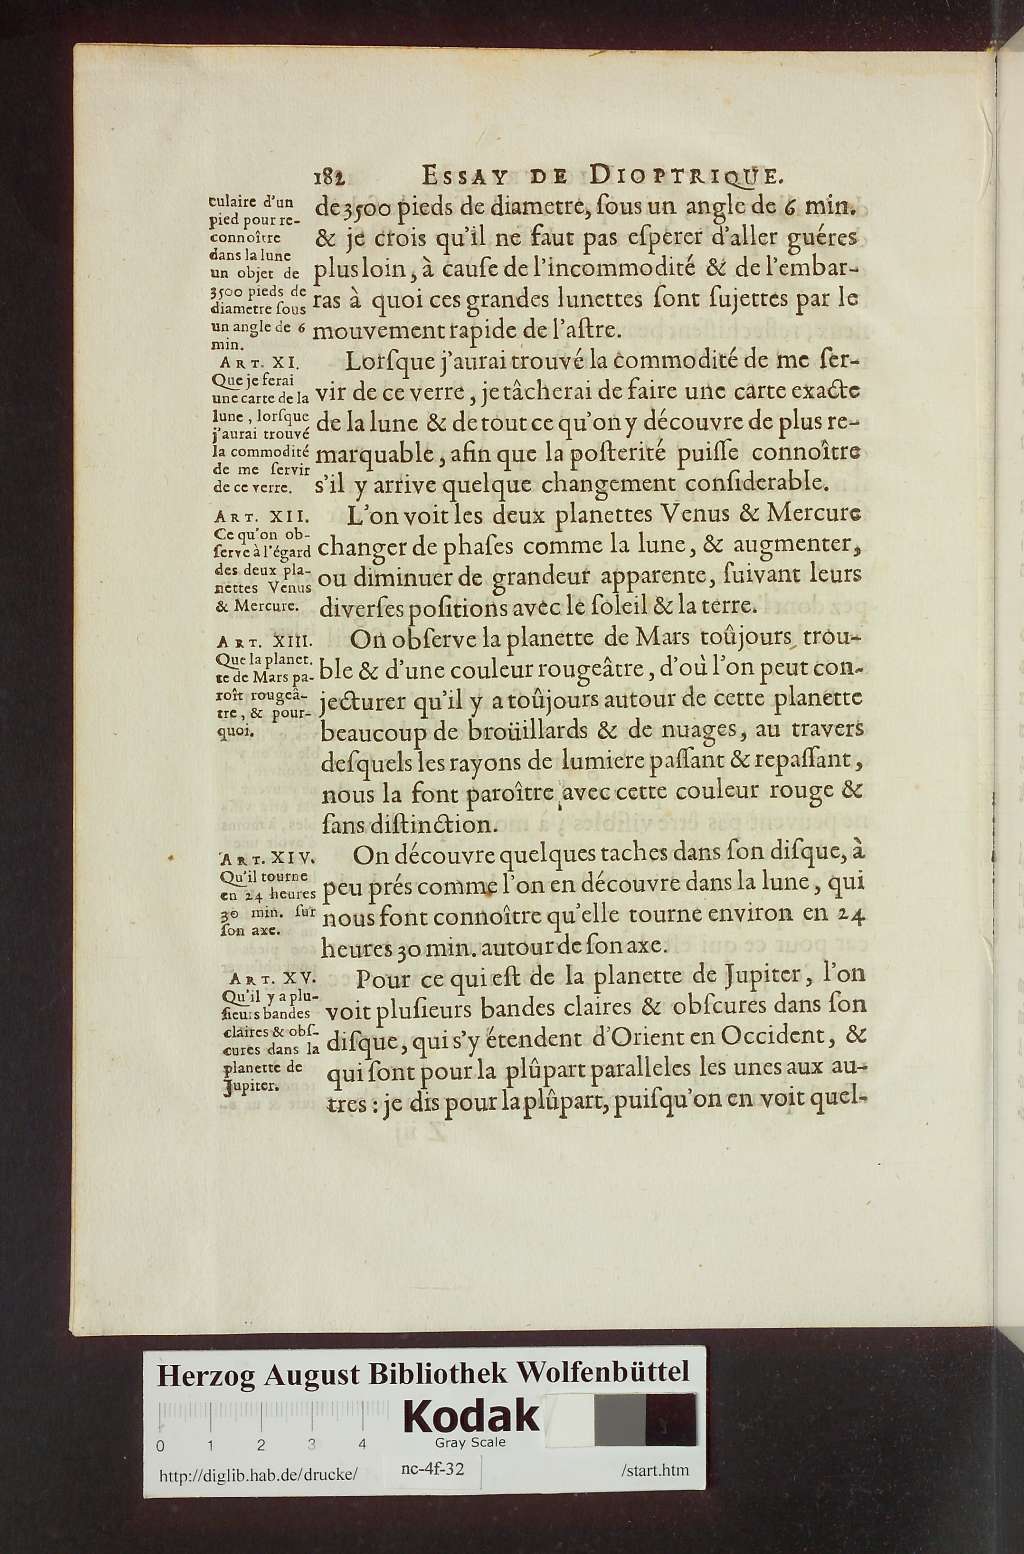 182 ESSAY DE DIOPTRIQUE.
culaire d'un
pied pour re-
connoître
dans la lune
un objet de
3500 pieds de
diametre sous
un angle de 6
min.
de 3500 pieds de diametre, ſous un angle de 6 min.
& je crois qu'il ne faut pas eſperer d'aller guéres
plus loin, à cauſe de l'incommodité & de l'embar-
ras à quoi ces grandes lunettes ſont ſujettes par le
mouvement rapide de l'aſtre.
ART. XI.
Que je ferai
une carte de la
lune, lorſque
j'aurai trouvé
la commodité
de me ſervir
de ce verre.
Lorſque j'aurai trouvé la commodité de me ſer-
vir de ce verre, je tâcherai de faire une carte exacte
de la lune & de tout ce qu'on y découvre de plus re-
marquable, afin que la poſterité puiſſe connoître
s'il y arrive quelque changement conſiderable.
ART. XII.
Ce qu'on ob-
ſerve à l'égard
des deux pla-
nettes Venus
& Mercure.
L'on voit les deux planettes Venus & Mercure
changer de phaſes comme la lune, & augmenter,
ou diminuer de grandeur apparente, ſuivant leurs
diverſes poſitions avec le ſoleil & la terre.
ART. XIII.
Que la planet.
te de Mars pa-
roît rougeâ-
tre, & pour-
quoi.
On obſerve la planette de Mars toûjours trou-
ble & d'une couleur rougeâtre, d'où l'on peut con-
jecturer qu'il y a toûjours autour de cette planette
beaucoup de broüillards & de nuages, au travers
deſquels les rayons de lumiere paſſant & repaſſant,
nous la font paroître avec cette couleur rouge &
ſans diſtinction.
ART. XIV.
Qu'il tourne
en 24 heures
30 min. ſur
ſon axe.
On découvre quelques taches dans ſon diſque, à
peu prés comme l'on en découvre dans la lune, qui
nous font connoître qu'elle tourne environ en 24
heures 30 min. autour de ſon axe.
ART. XV.
Qu'il y a plu-
ſieurs bandes
claires & obſ-
cures dans la
planette de
Jupiter.
Pour ce qui eſt de la planette de Jupiter, l'on
voit pluſieurs bandes claires & obſcures dans ſon
diſque, qui s'y étendent d'Orient en Occident, &
qui ſont pour la plûpart paralleles les unes aux au-
tres : je dis pour la plûpart, puiſqu'on en voit quel-
Herzog August Bibliothek Wolfenbüttel
Kodak
Gray Scale
0 1 2 3 4
http://diglib.hab.de/drucke/ nc-4f-32 /start.htm